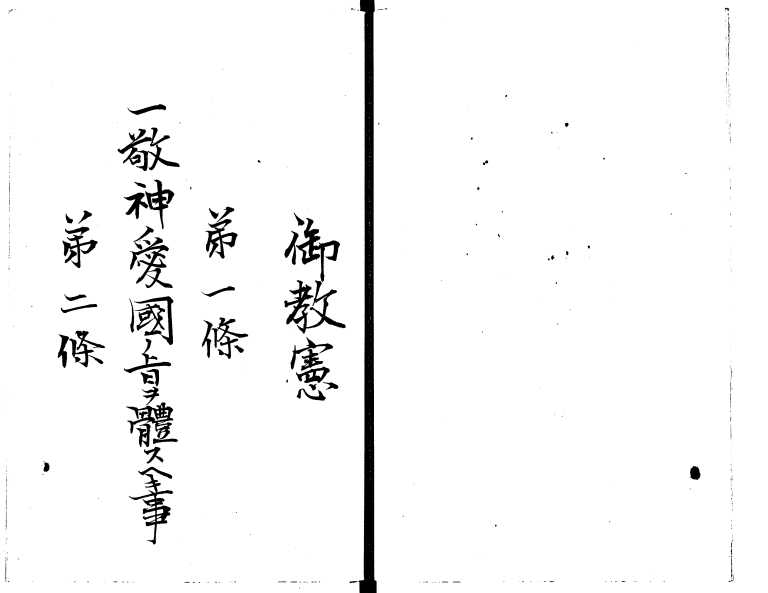 御教憲
第一條
一敬神愛國ノ旨ヲ體スヘキ事
第二條